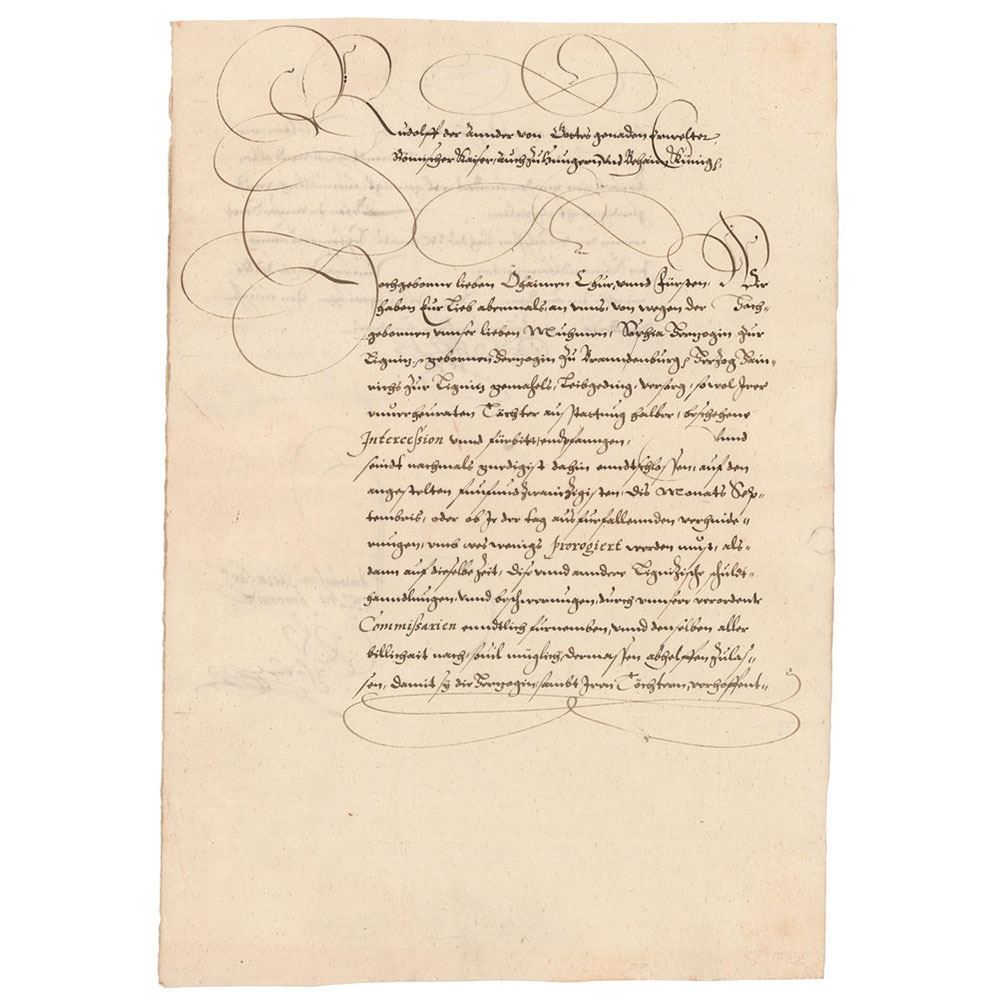 Rudolff der Annder von Gottes genaden Erwelter
Römischer Kaiser, auch zu Hungern und Behaim Künig
Hochgeborne lieben Öhaimen Chur, unnd Fürsten, Wir
haben Eur Lieb abermals, an unns, von wegen der Hoch¬
gebornen unnser lieben Muhmen, Sophia Hertzogin zur
Lignitz, gebornen Hertzogin zu Brandenburg, Hertzog Hain¬
richs zur Lignitz gemahels, Leibgeding, versorg, sowol Irer
unverheuraten Töchter ausstattung halber, beschehene
Intercession unnd fürbitt, emdpfanngen, Unnd
seindt nachmals gnedigist dahin enndtschlossen, auf den
angestelten funfundzwainzigisten, dis Monats Sep¬
tembris, oder ob Je der tag aus fürfallennden verhinde¬
rungen, umb was wenigs prorogiert worden müst, als¬
dann auf dieselbe Zeit, dise unnd anndere Lignizische schuldt¬
hanndlungen, unnd beschwerungen, durch unnsere verordente
Commissarien enndtlich fürnemben, unnd denselben aller
billichait nach, sovil müglich, dermassen abhelffen zulas¬
sen, damit sy die Hertzogin, sambt Iren Töchtern, verhoffent¬